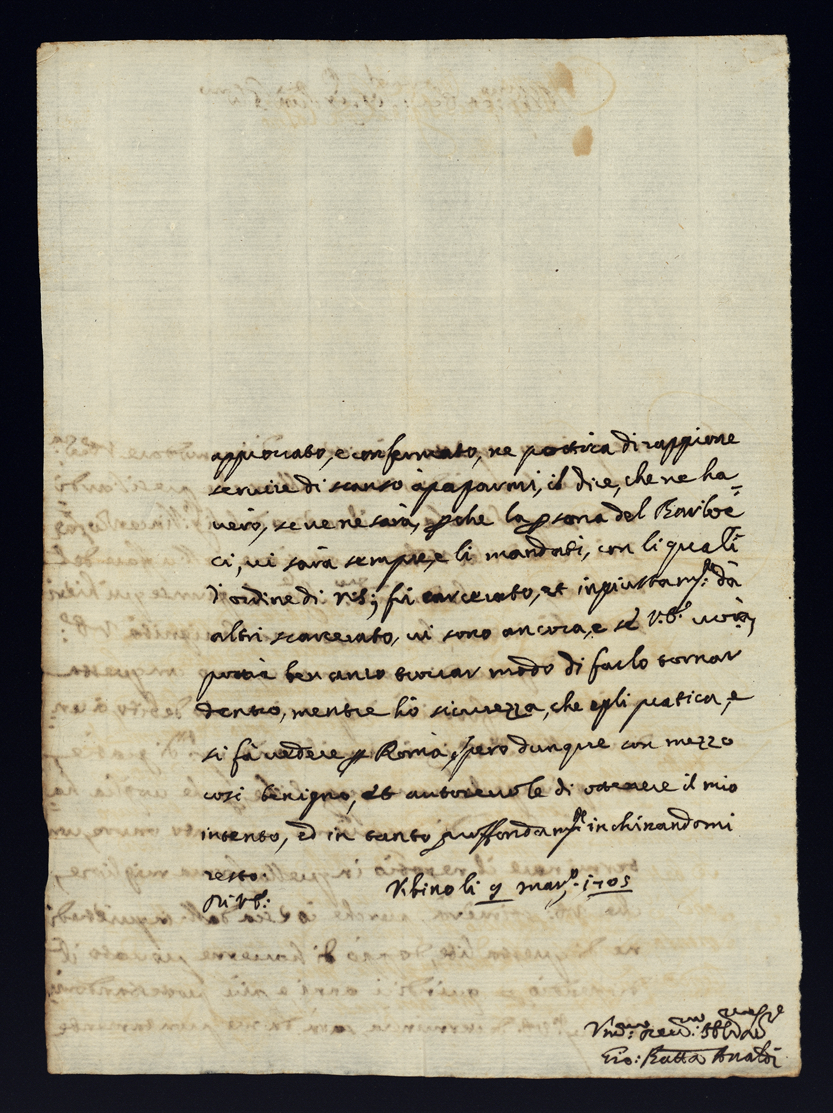 approvato, e confermato, ne potrà di ragione
servire di scanso à pagarmi, il dire, che ne ha=
verò, se ve ne sarà, p che la psona del Barboc=
ci, vi sarà sempre, e li mandati, con li quali
d'ordine di fù carcerato, et ingiustam.te da
altri scarcerato, vi sono ancora, e se V.S. vorrà,
potrà ben anco trovar modo di farlo tornar
dentro, mentre hò sicurezza, che egli pratica, e
si fà vedere p Roma, spero dunque con mezzo
così benigno, et autorevole di ottenere il mio
intento, ed in tanto inchinandomi
resto.
Di V.S.
Vrbino li 9 marzo 1705
Gio: Batta